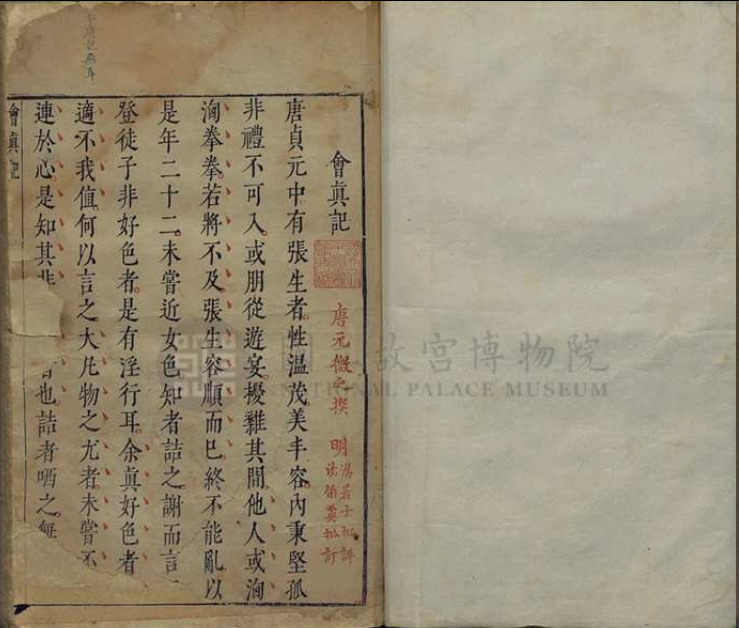 會真記
唐元微之撰 明
湯若士批評
沈伯英批訂
唐貞元中有張生者性溫茂美丰容內秉堅孤
非禮不可入或朋從遊宴擾雜其間他人或洶
洶拳拳若將不及張生容順而已終不能亂以
是年二十二未嘗近女色知者詰之謝而言
登徒子非好色者是有淫行耳余真好色者
適不我值何以言之大凡物之尤者未嘗不
連於心是知其非
也詰者哂之
會真記
國立故宮博物院
NATIONAL PALACE MUSEUM